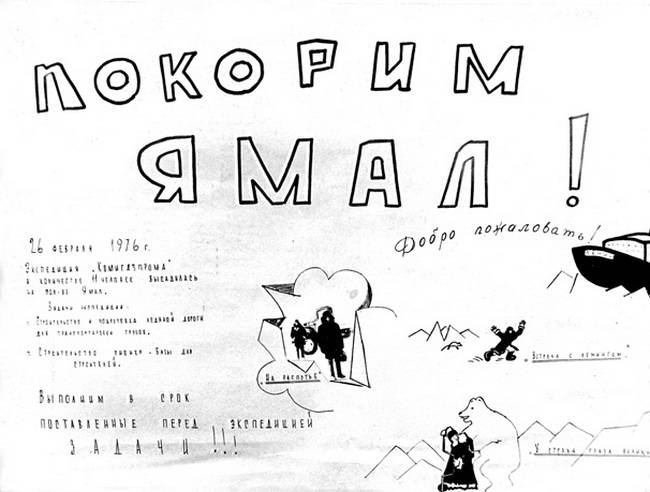 ПОКОРИМ
ЯМАЛ!
Добро пожаловать!
26 февраля 1976 г.
Экспедиция „Комигазпрома"
в количестве 11 человек высадилась
на пол-ве Ямал.
Задачи экспедиции:
Строительство и подготовка ледяной дороги
для транспортировки грузов.
Строительство пионер-базы для
строителей.
Выполним в срок
поставленные перед экспедицией
ЗАДАЧИ!!!
„На распутье"
„Встреча с лемингом."
„У страха глаза велики